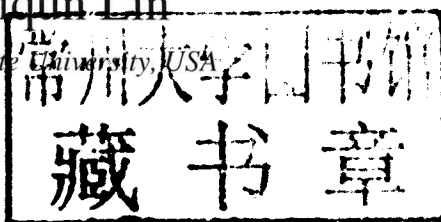 iqun Lin
te University, USA
常州大学图书馆
藏书章